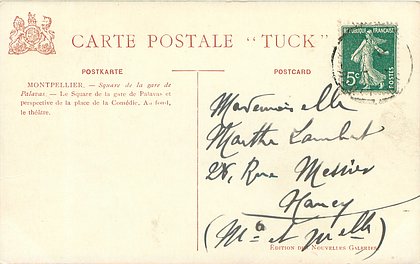 CARTE POSTALE "TUCK"
POSTKARTE
POSTCARD
REPUBLIQUE FRANÇAISE
5c
POSTES
MONTPELLIER. — Square de la gare de
Palavas. — Le Square de la gare de Palavas et
perspective de la place de la Comédie. Au fond,
le théâtre.
Mademoiselle
Marthe Lambert
28, Rue Messier
Nancy
(Mte et Melle)
EDITION DES NOUVELLES GALERIES